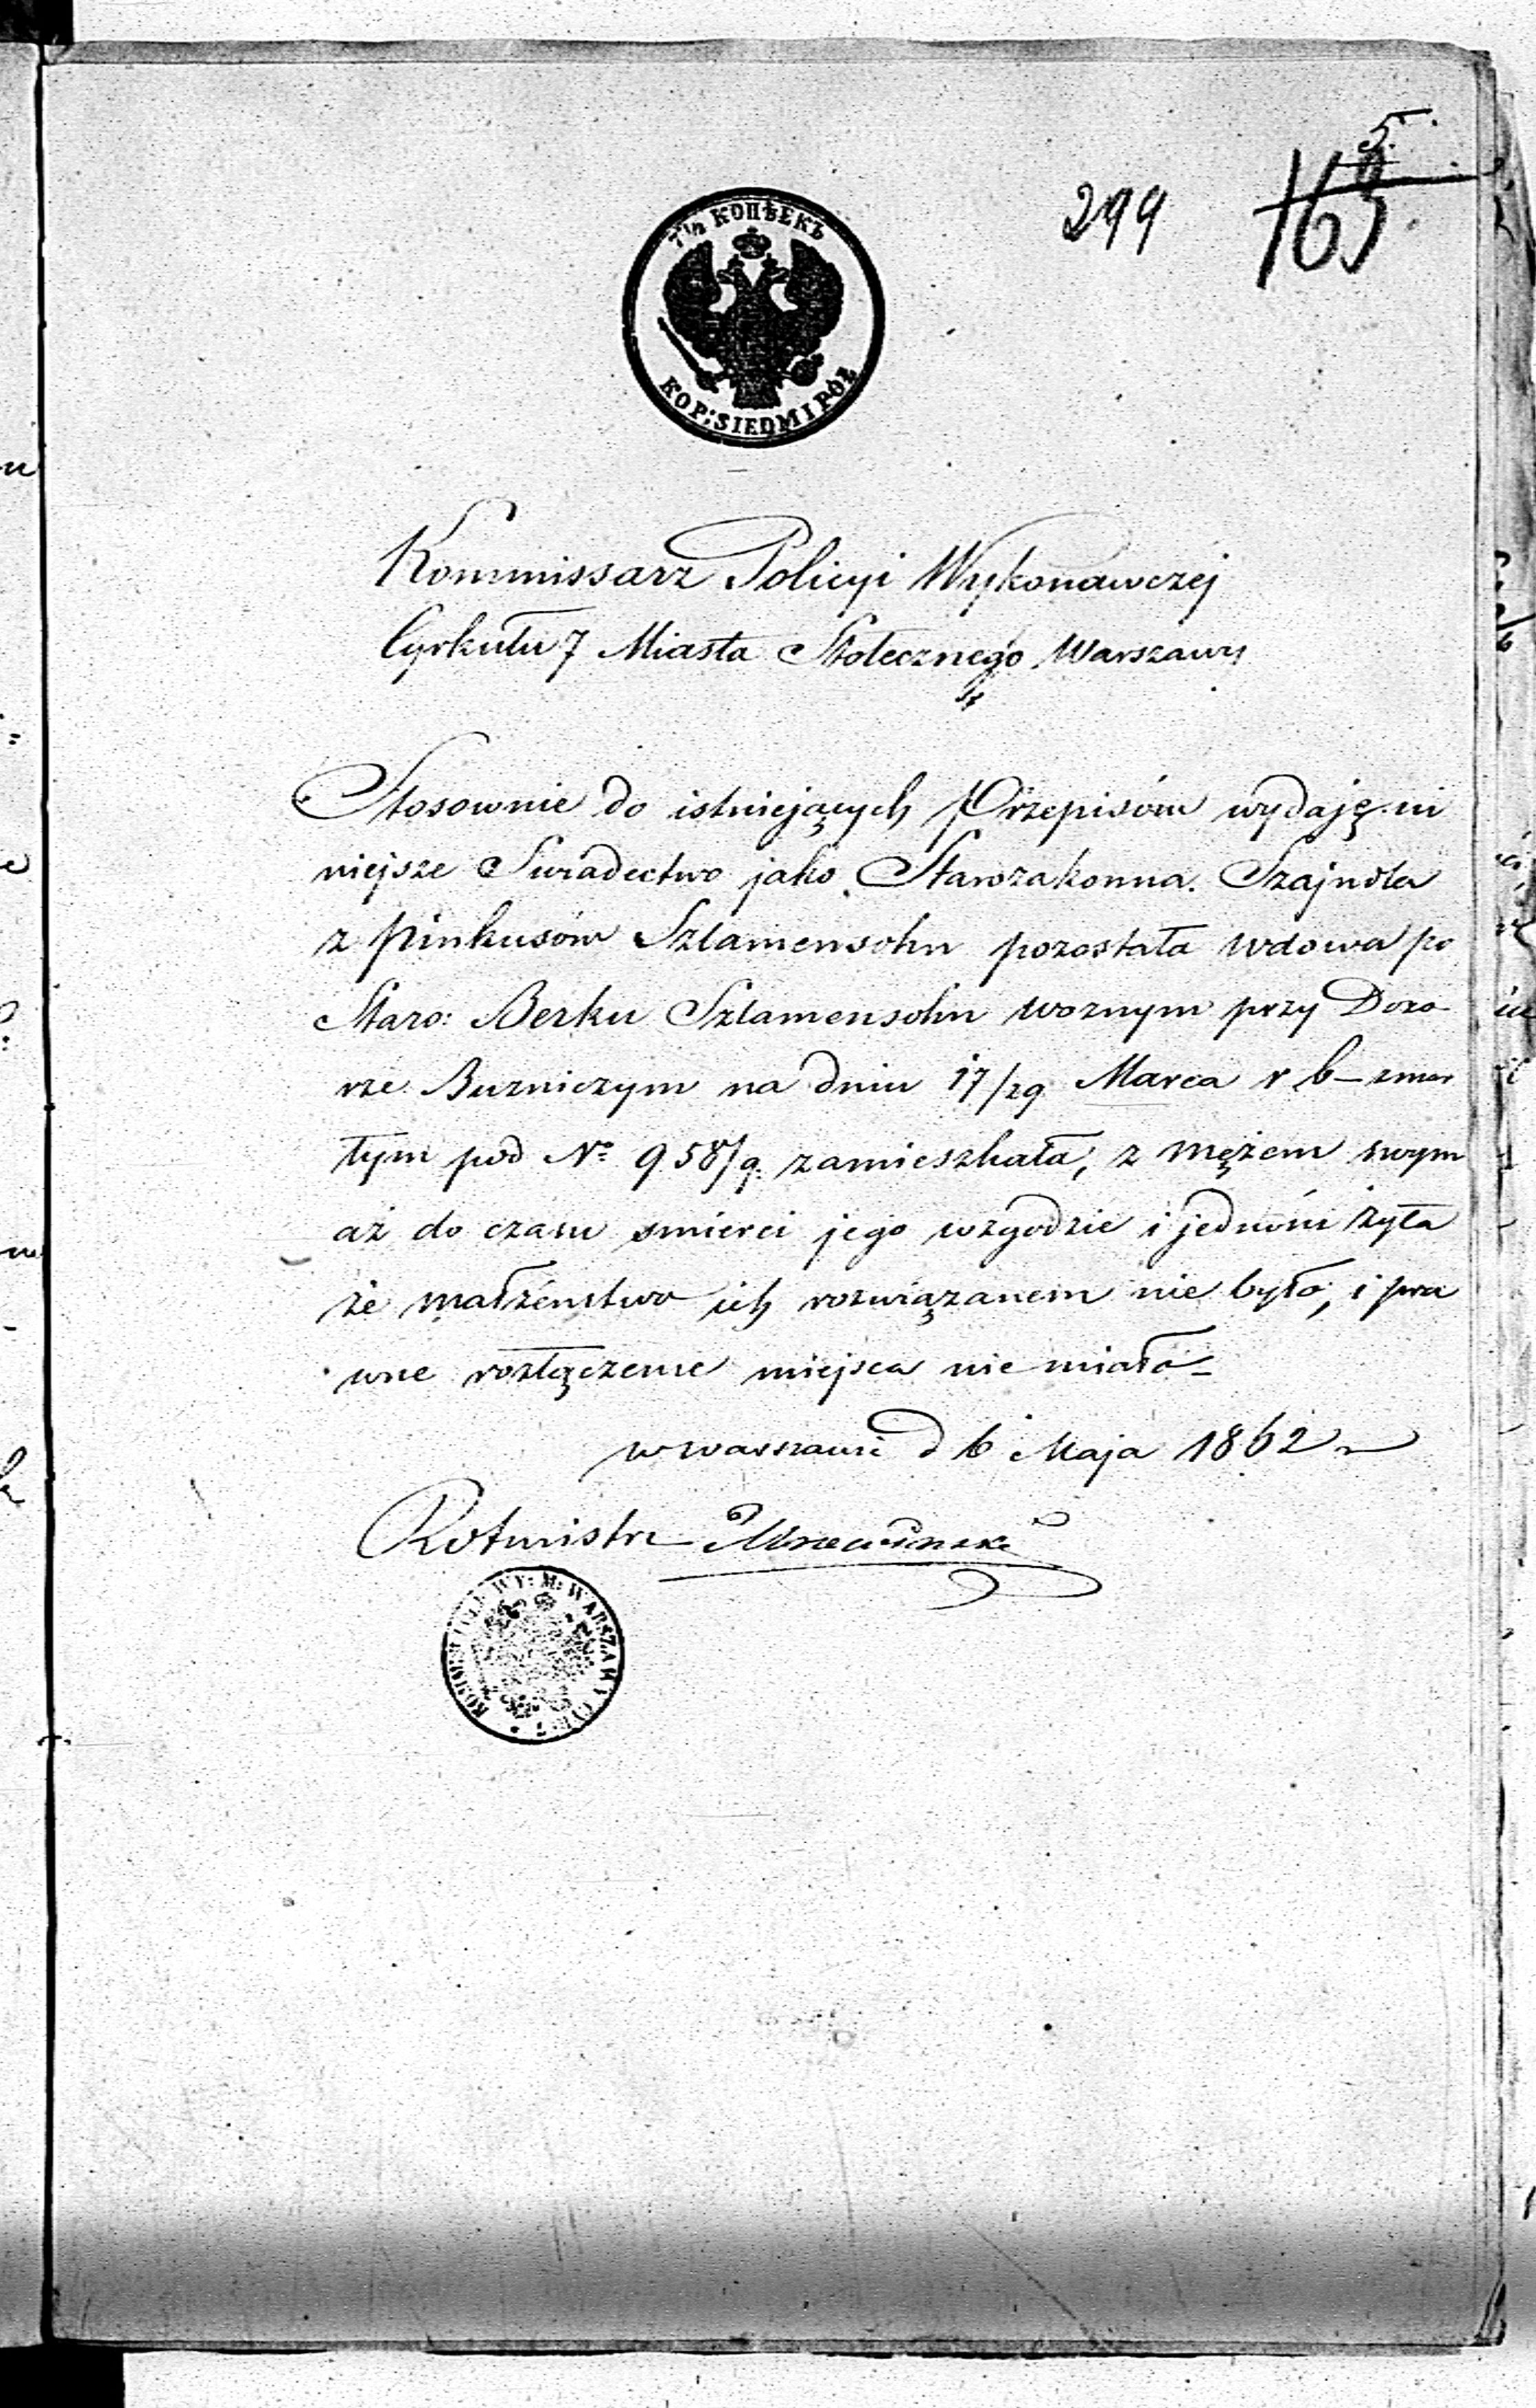 5.
299
163
7½ КОПѢЕКЪ
KOP: SIEDM I PÓŁ
Kommissarz Policyi Wykonawczej
Cyrkułu 7 Miasta Stołecznego Warszawy
Stosownie do istniejących Przepisów wydaję ni
niejsze Swiadectwo jako Starozakonna Szajndla
z Pinkusów Szlamensohn pozostała wdowa po
Staro: Berku Szlamensohn woznym przy Dozo-
rze Buzniczym na dniu 17/29 Marca r b – zmar
łym pod No 958/9. zamieszkała, z mężem swym
aż do czasu smierci jego wzgodzie i jednosci żyła
że małżeństwo ich rozwiązanem nie było, i pra
wne rozłączenie miejsca nie miało –
w Warszawie d 6 Maja 1862 r
Rotmistrz
WY: M: WARSZAWY